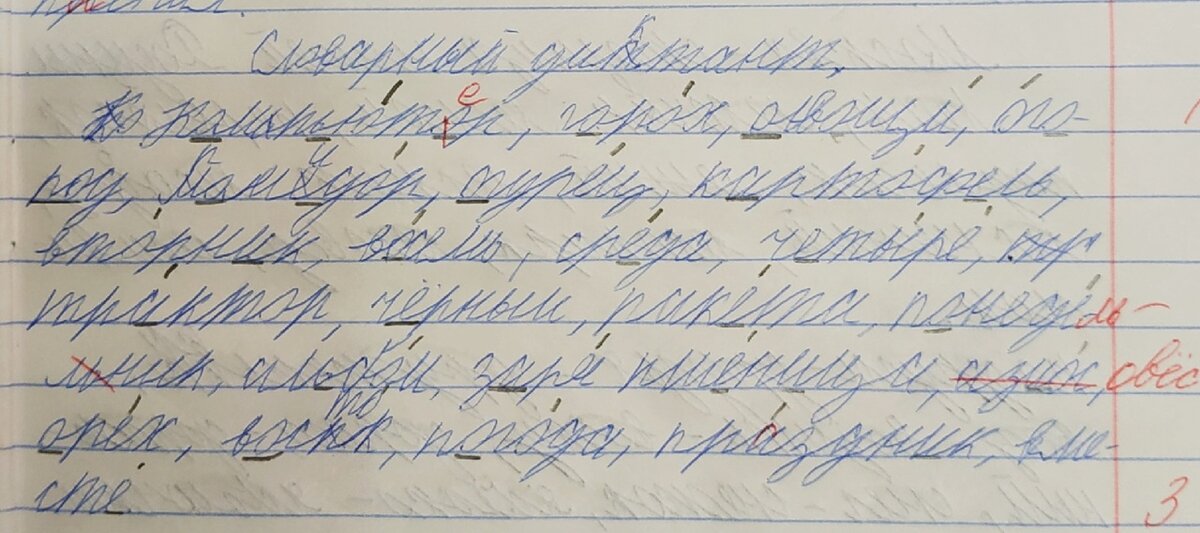 Словарный диктант.
Компьютер, горох, овощи, ого-
род, помидор, огурец, картофель,
вторник, восемь, среда, четыре,
трактор, чёрный, ракета, понедель-
ник, альбом, заря пшеница, овёс
орех, восток, погода, праздник, вме-
сте.
3